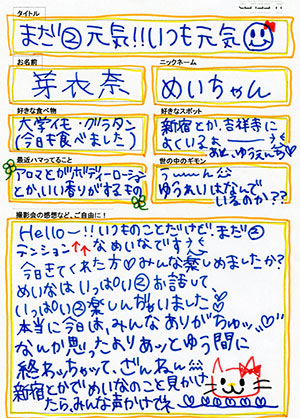 タイトル
まだ②元気!!いつも元気
お名前
ニックネーム
芽衣奈
めいちゃん
好きな食べ物
好きなスポット
大学イモ・グラタン
(今日も食べました)
新宿とか、吉祥寺に
よくいるょ
あと、ゆうえんち
最近ハマってること
世の中のギモン
アロマとかボディーローション
とか、いい香りがするもの
うーーん
ゆうれいはなんで
いるのか??
撮影会の感想など、ご自由に!
Hello~!!いつものことだけど、まだ②
テンション↑↑なめいなですっ
今日きてくれた方♡みんな楽しめましたか?
めいなはいっぱい②お話して、
いっぱい②楽しんぢゃいました♡
本当に今日は、みんなありがちゅッ
なんか思ったよりあッとゆう間に
終わッちゃって、ざんねん
新宿とかでめいなのこと見かけ
たら、みんな声かけてネ